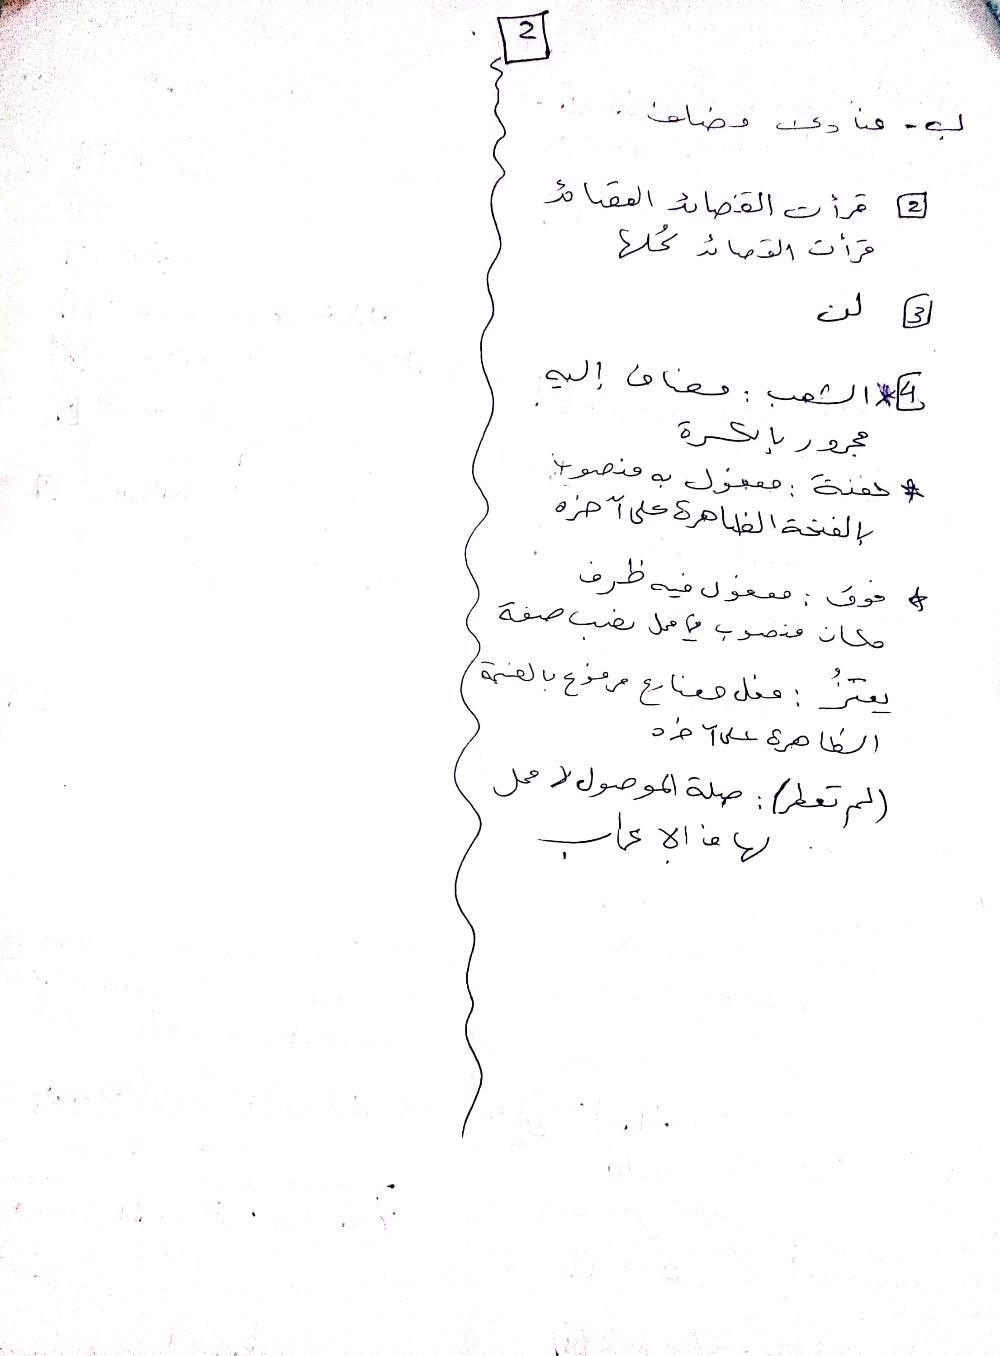 2
ب- منادى مضاف
2 قرأت القصائد القصائد
قرأت القصائد كُلها
3 لن
4 * الشعب : مضاف إليه
مجرور بالكسرة
* حفنة : مفعول به منصوب
بالفتحة الظاهرة على آخره
* فوق : مفعول فيه ظرف
مكان منصوب في محل نصب صفة
يعتزُ : فعل مضارع مرفوع بالضمة
الظاهرة على آخره
(لم تعطر) : صلة الموصول لا محل
لها من الإعراب